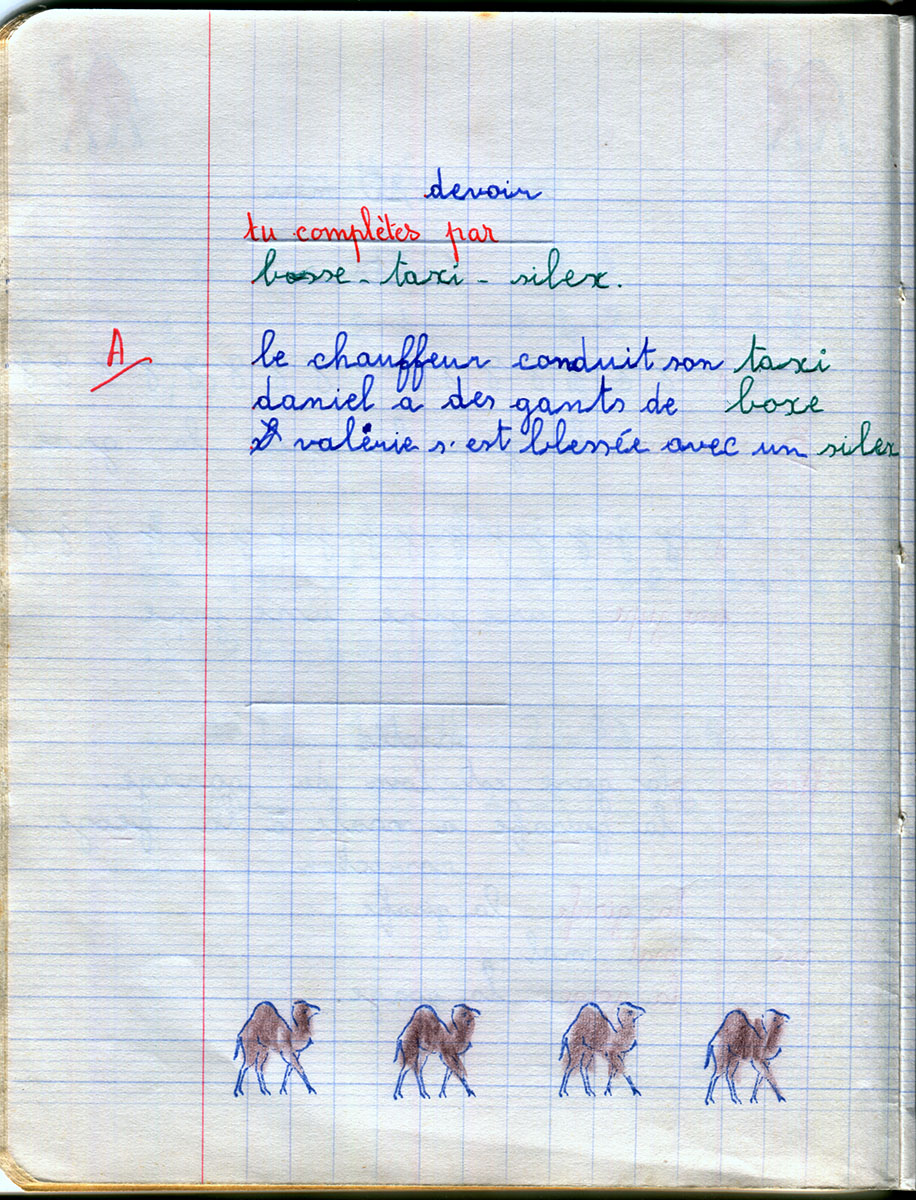 devoir
tu complètes par
bosse - taxi - silex.
A
le chauffeur conduit son taxi
daniel a des gants de boxe
valérie s'est blessée avec un silex